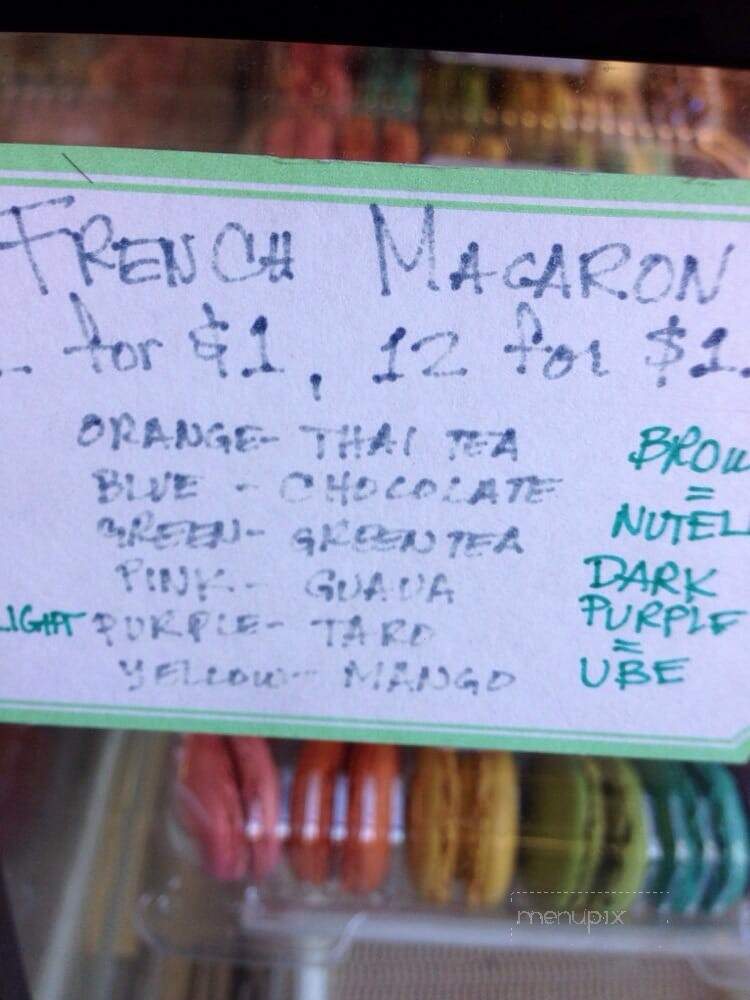 FRENCH MACARON
for $1, 12 for $1
ORANGE- THAI TEA
BLUE - CHOCOLATE
GREEN- GREEN TEA
PINK- GUAVA
LIGHT PURPLE- TARO
YELLOW- MANGO
BROW
=
NUTEL
DARK
PURPLE
=
UBE
menupix